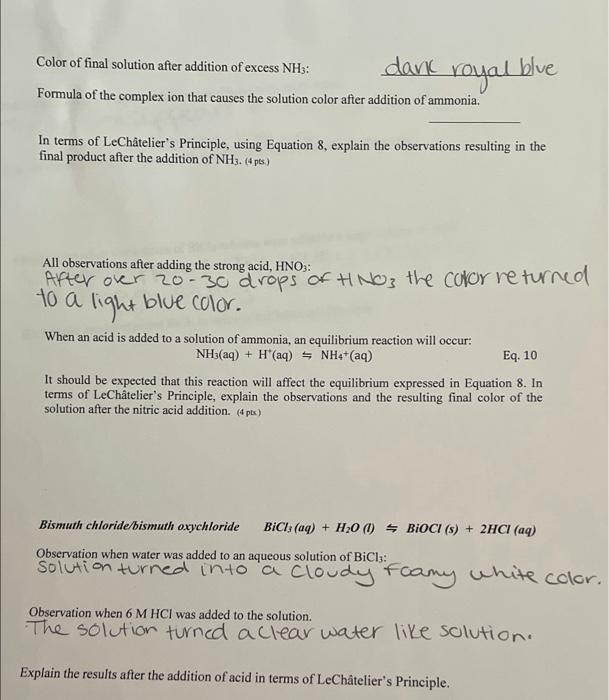 Color of final solution after addition of excess NH₃: dark royal blue
Formula of the complex ion that causes the solution color after addition of ammonia.
In terms of LeChâtelier's Principle, using Equation 8, explain the observations resulting in the
final product after the addition of NH₃. (4 pts.)
All observations after adding the strong acid, HNO₃:
After over 20-30 drops of HNO₃ the color returned
to a light blue color.
When an acid is added to a solution of ammonia, an equilibrium reaction will occur:
NH₃(aq) + H⁺(aq) ⇋ NH₄⁺(aq) Eq. 10
It should be expected that this reaction will affect the equilibrium expressed in Equation 8. In
terms of LeChâtelier's Principle, explain the observations and the resulting final color of the
solution after the nitric acid addition. (4 pts.)
Bismuth chloride/bismuth oxychloride BiCl₃ (aq) + H₂O (l) ⇋ BiOCl (s) + 2HCl (aq)
Observation when water was added to an aqueous solution of BiCl₃:
Solution turned into a cloudy foamy white color.
Observation when 6 M HCl was added to the solution.
The solution turned a clear water like solution.
Explain the results after the addition of acid in terms of LeChâtelier's Principle.